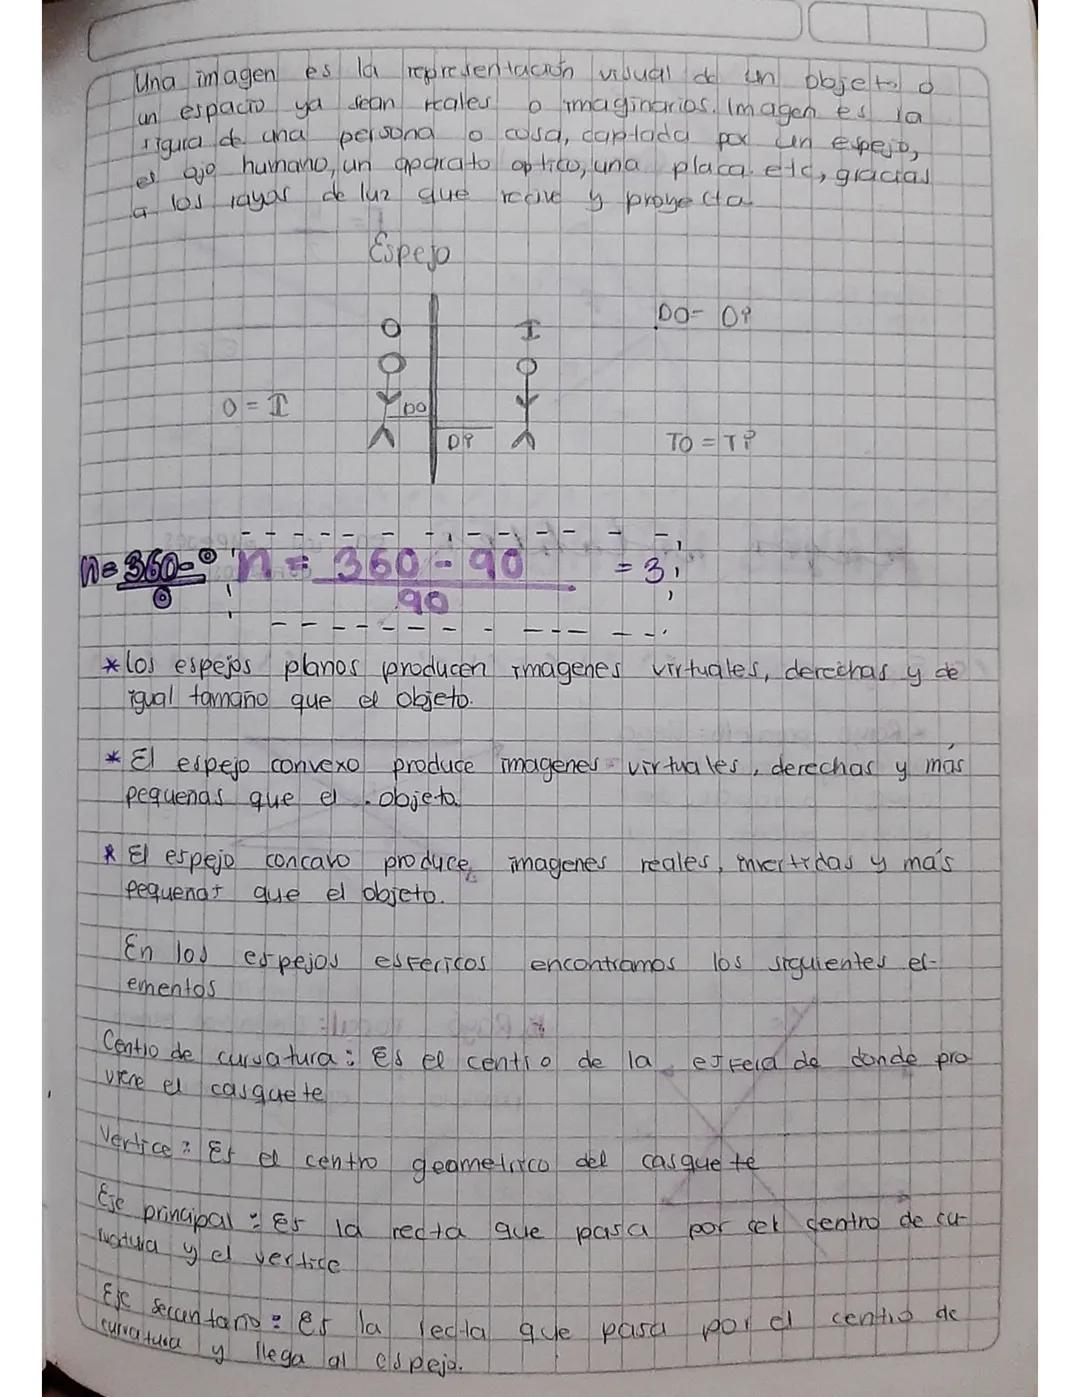 Una imagen es la representación visual de un objeto o
un espacio ya sean reales o imaginarios. Imagen es la
figura de una persona o cosa, captada por un espejo,
el ojo humano, un aparato optico, una placa etc, gracias
a los rayos de luz que recive y proyecta
Espejo
O I DO= DI
O = I DO
DI TO = TI
n= 360-θ / θ n = 360 - 90 / 90 = 3
* Los espejos planos producen imagenes virtuales, derechas y de
igual tamaño que el objeto.
* El espejo convexo produce imagenes virtuales, derechas y más
pequeñas que el objeto
* El espejo concavo produce imagenes reales, invertidas y más
pequeñas que el objeto.
En los espejos esfericos encontramos los siguientes el-
ementos
Centro de curvatura: Es el centro de la esfera de donde pro
viene el casquete
Vertice: Es el centro geometrico del casquete
Eje principal: Es la recta que pasa por cel sentro de cu-
rvatura y el vertice
Eje secuntario: es la recta que pasa por el centro de
curvatura y llega al espejo.